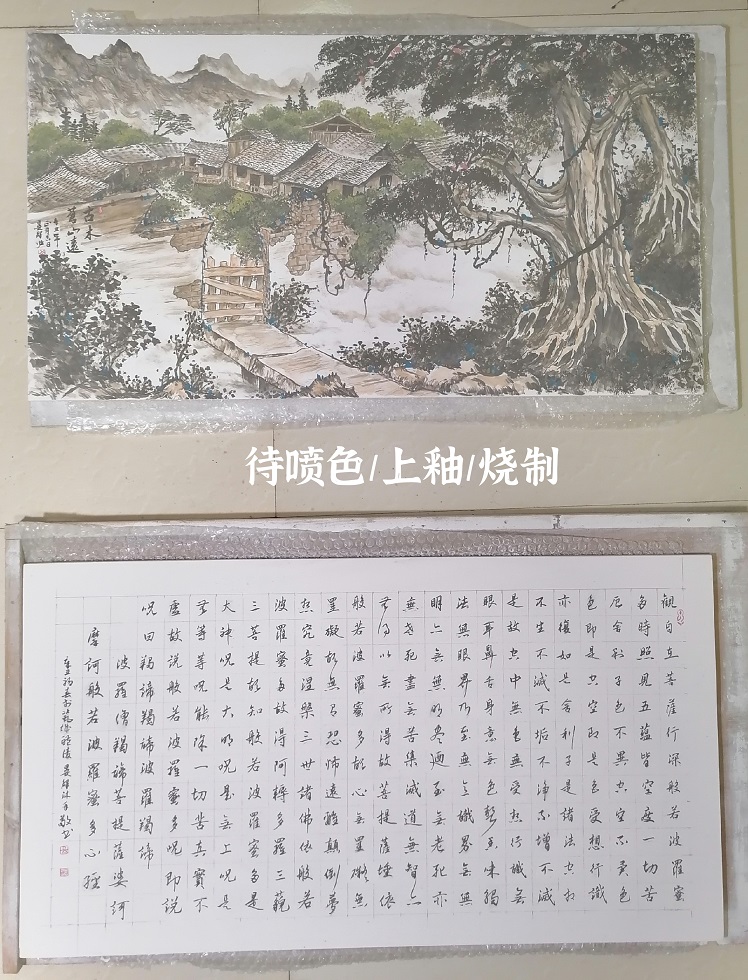 古木
山遠
待喷色/上釉/烧制
觀自在菩薩行深般若波羅蜜
多時照見五蘊皆空度一切苦
厄舍利子色不異空空不異色
色即是空空即是色受想行識
亦復如是舍利子是諸法空相
不生不滅不垢不淨不增不減
是故空中無色無受想行識無
眼耳鼻舌身意無色聲香味觸
法無眼界乃至無意識界無無
明亦無無明盡乃至無老死亦
無老死盡無苦集滅道無智亦
無得以無所得故菩提薩埵依
般若波羅蜜多故心無罣礙無
罣礙故無有恐怖遠離顛倒夢
想究竟涅槃三世諸佛依般若
波羅蜜多故得阿耨多羅三藐
三菩提故知般若波羅蜜多是
大神呪是大明呪是無上呪是
無等等呪能除一切苦真實不
虛故說般若波羅蜜多呪即說
呪曰羯諦羯諦波羅羯諦
波羅僧羯諦菩提薩婆訶
摩訶般若波羅蜜多心經